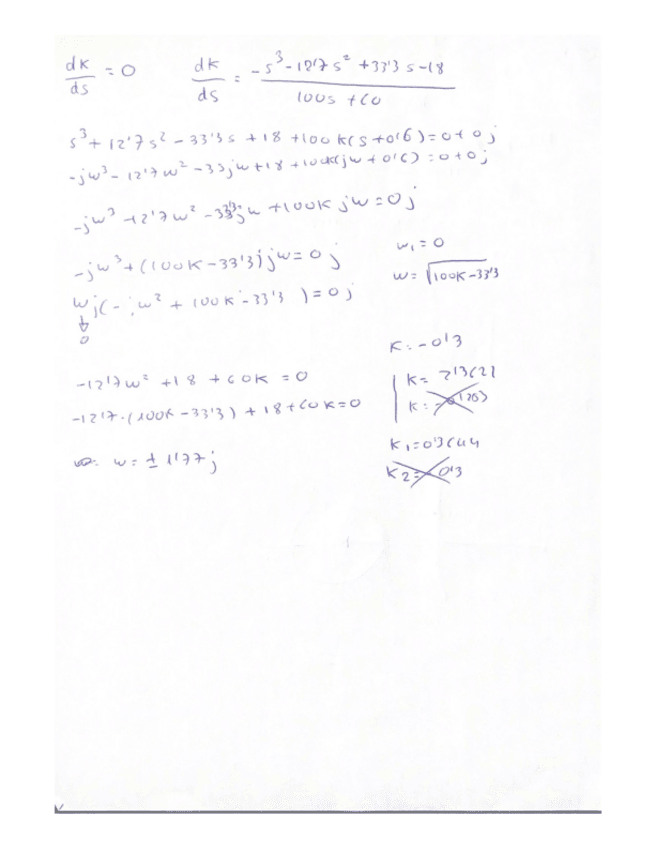 dk/ds = 0   dk/ds = (-s³ - 12'7s² + 33'3s - 18)/(100s + 60)
s³ + 12'7s² - 33'3s + 18 + 100k(s + 0'6) = 0 + 0j
-jw³ - 12'7w² - 33jw + 18 + 100k(jw + 0'6) = 0 + 0j
-jw³ + 2'7w² - jw + 100K jw = 0j
-jw³ + (100K - 33'3)jw = 0j   w₁ = 0
wj(-w² + 100K - 33'3) = 0j   w = √100K - 33'3
↓
0
K = -0'3
-12'7w² + 18 + 60K = 0   K =
-12'7·(100K - 33'3) + 18 + 60K = 0   K =
K₁ = 0'3644
w = ± 1'77j   K2 = -0'3